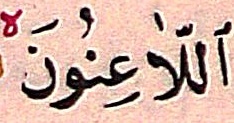 ٱللَّٰعِنُونَ